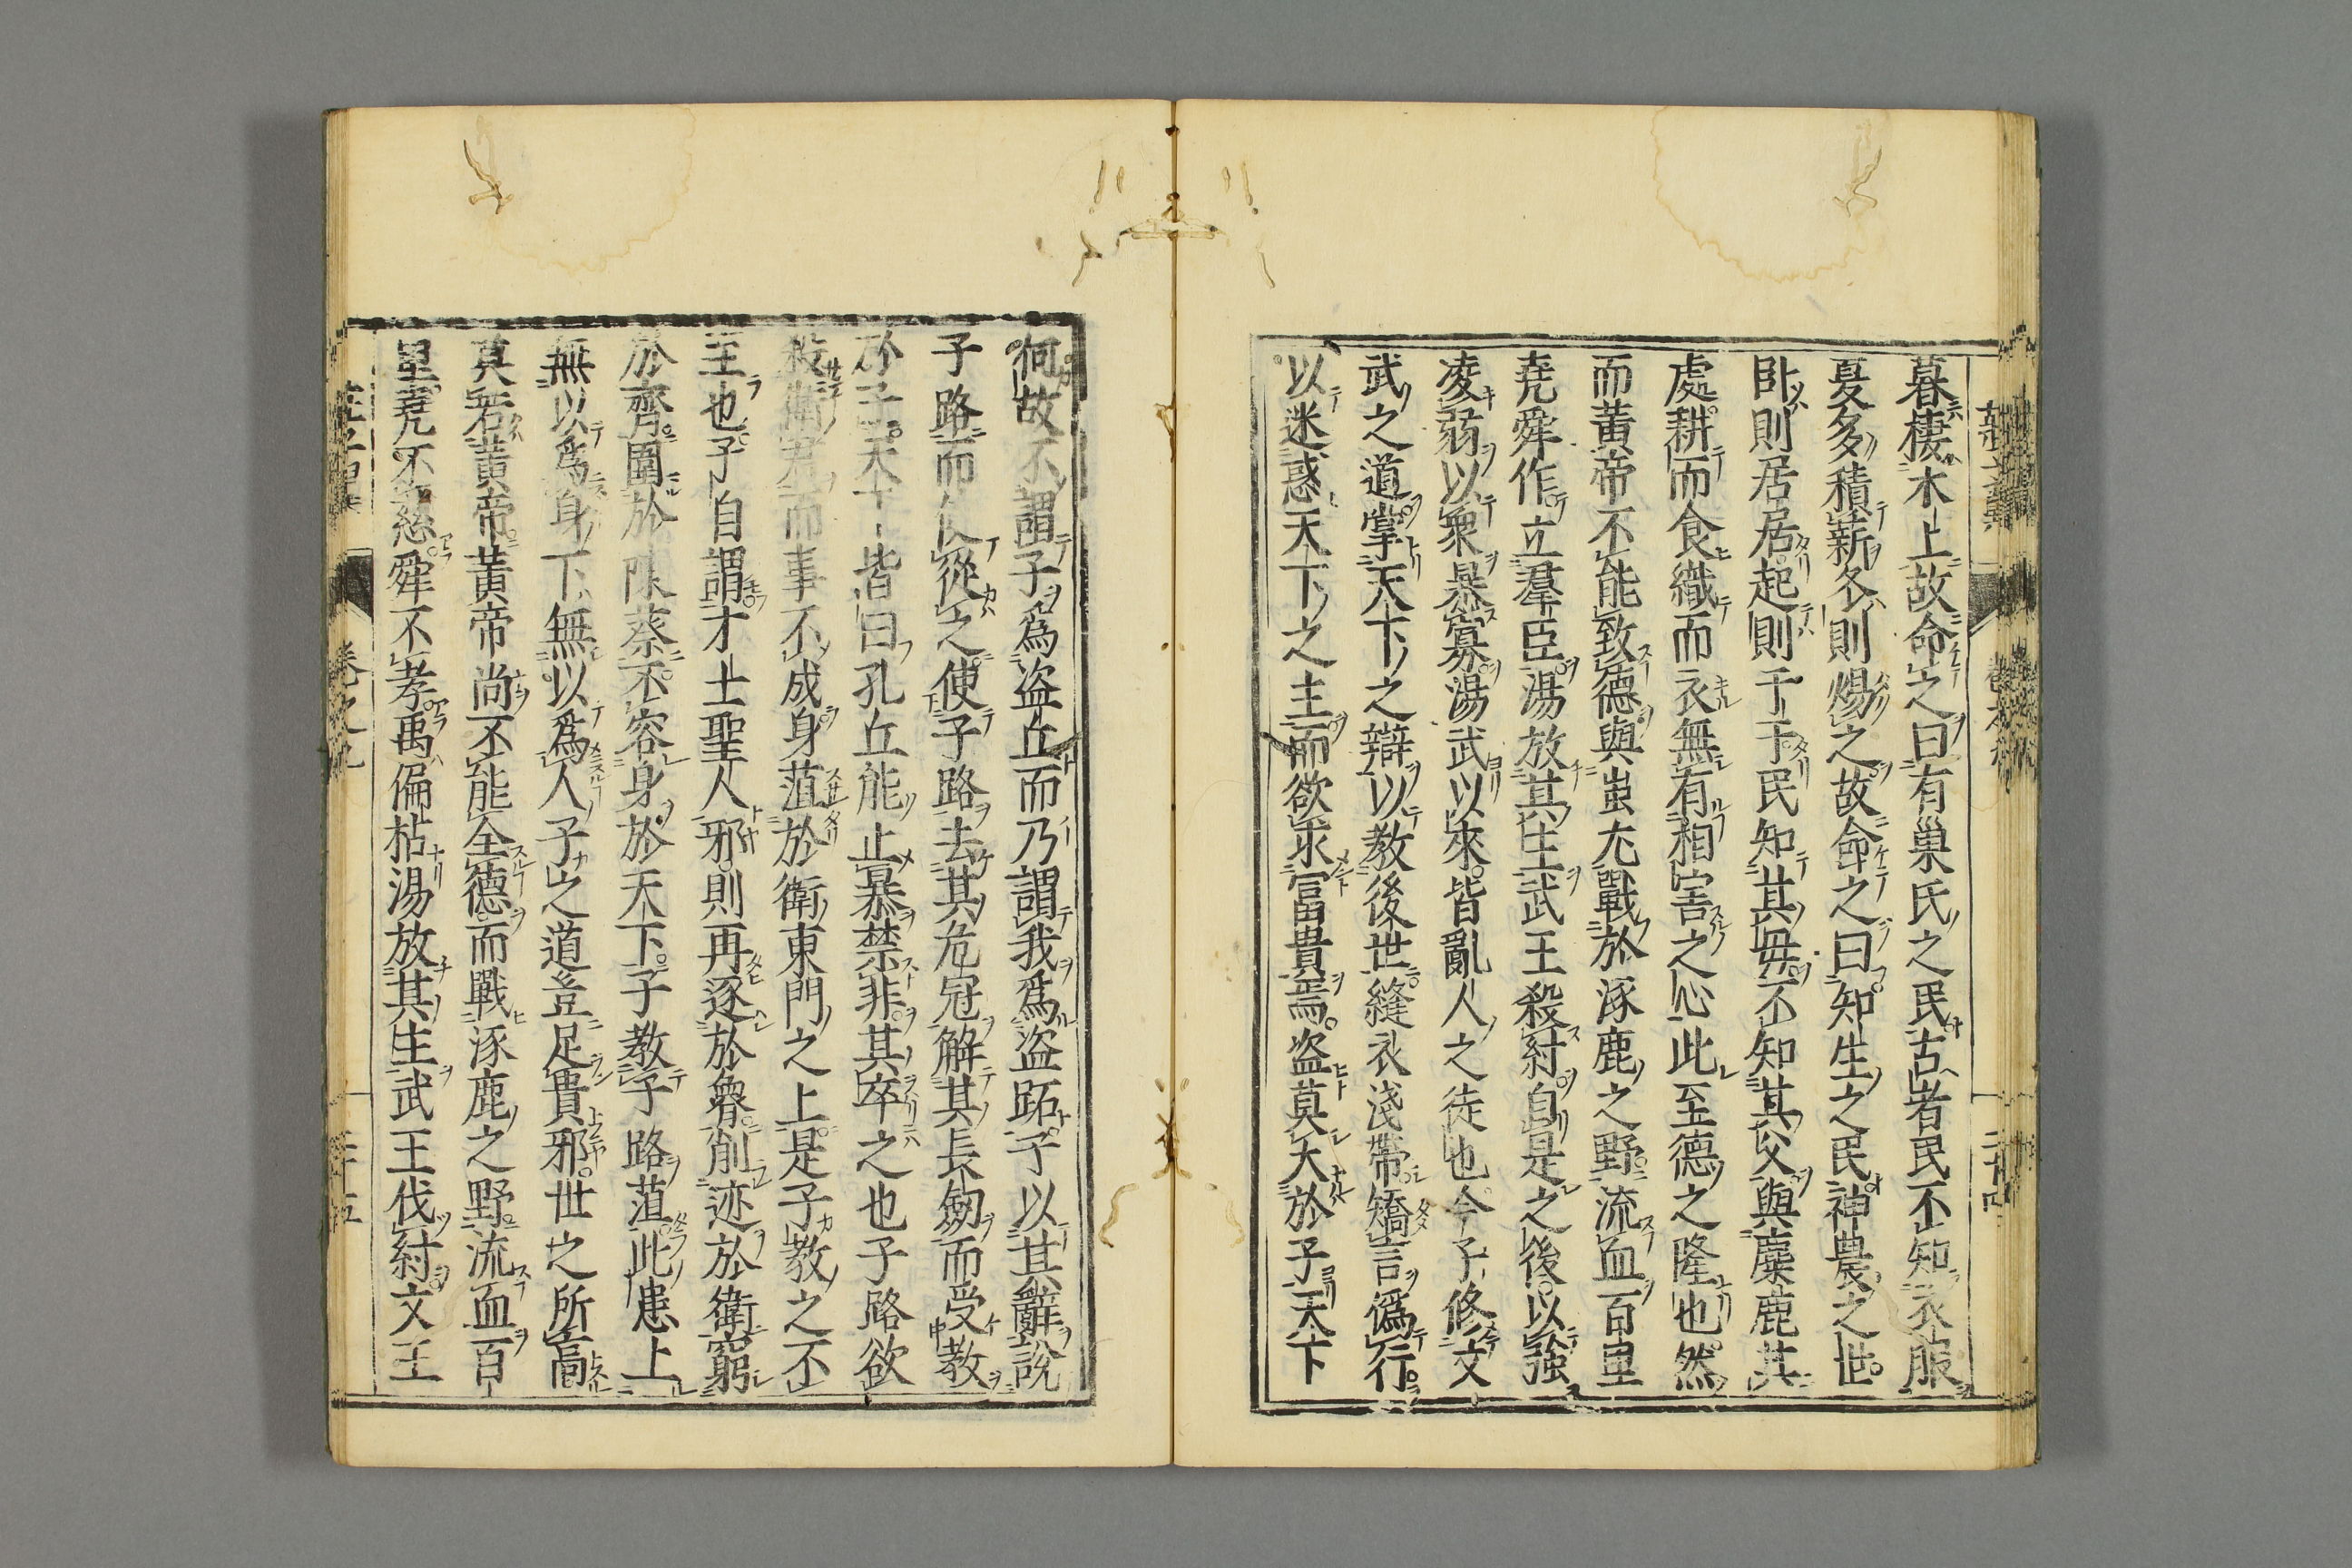 暮棲木上故命之曰有巢氏之民古者民不知衣服
夏多積薪冬則煬之故命之曰知生之民神農之世
臥則居居起則于于民知其母不知其父與麋鹿共
處耕而食織而衣無有相害之心此至德之隆也然
而黃帝不能致德與蚩尤戰於涿鹿之野流血百里
堯舜作立羣臣湯放其主武王殺紂自是之後以強
凌弱以衆暴寡湯武以來皆亂人之徒也今子修文
武之道掌天下之辯以教後世縫衣淺帶矯言僞行
以迷惑天下之主而欲求冨貴焉盗莫大於子天下
何故不謂子爲盗丘而乃謂我爲盗跖子以其辭說
子路而使從之使子路去其危冠解其長劒而受教
於子天下皆曰孔丘能止暴禁非其卒之也子路欲
殺衛君而事不成身菹於衛東門之上是子教之不
至也子自謂才士聖人邪則再逐於魯削迹於衛窮
於齊圍於陳蔡不容身於天下子教子路菹此患上
無以爲身下無以爲人子之道豈足貴邪世之所高
莫若黃帝黃帝尚不能全德而戰涿鹿之野流血百
里堯不慈舜不孝禹偏枯湯放其主武王伐紂文王
卷之九
二十五